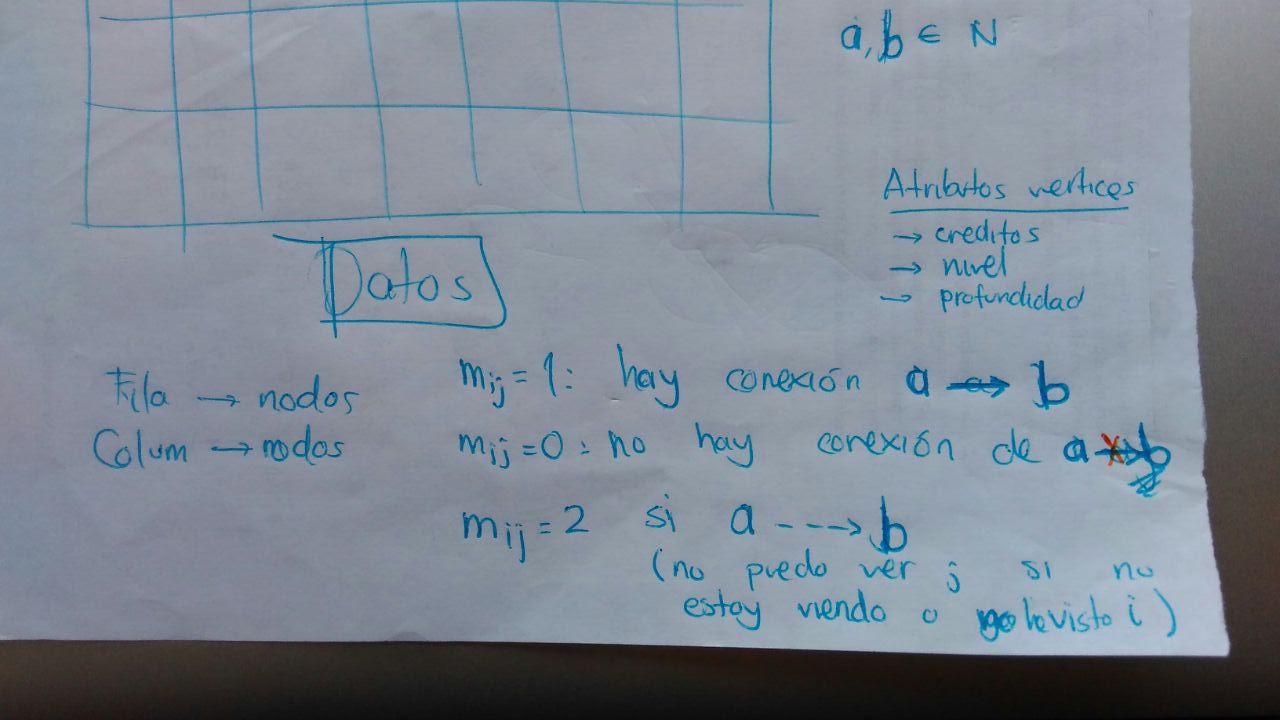 a, b ∈ N
Atributos vertices
→ creditos
→ nivel
→ profundidad
Datos
Fila → nodos
Colum → nodos
mij = 1: hay conexión a → b
mij = 0: no hay conexión de a → b
mij = 2 si a ---> b
(no puedo ver j si no
estoy viendo o he visto i)